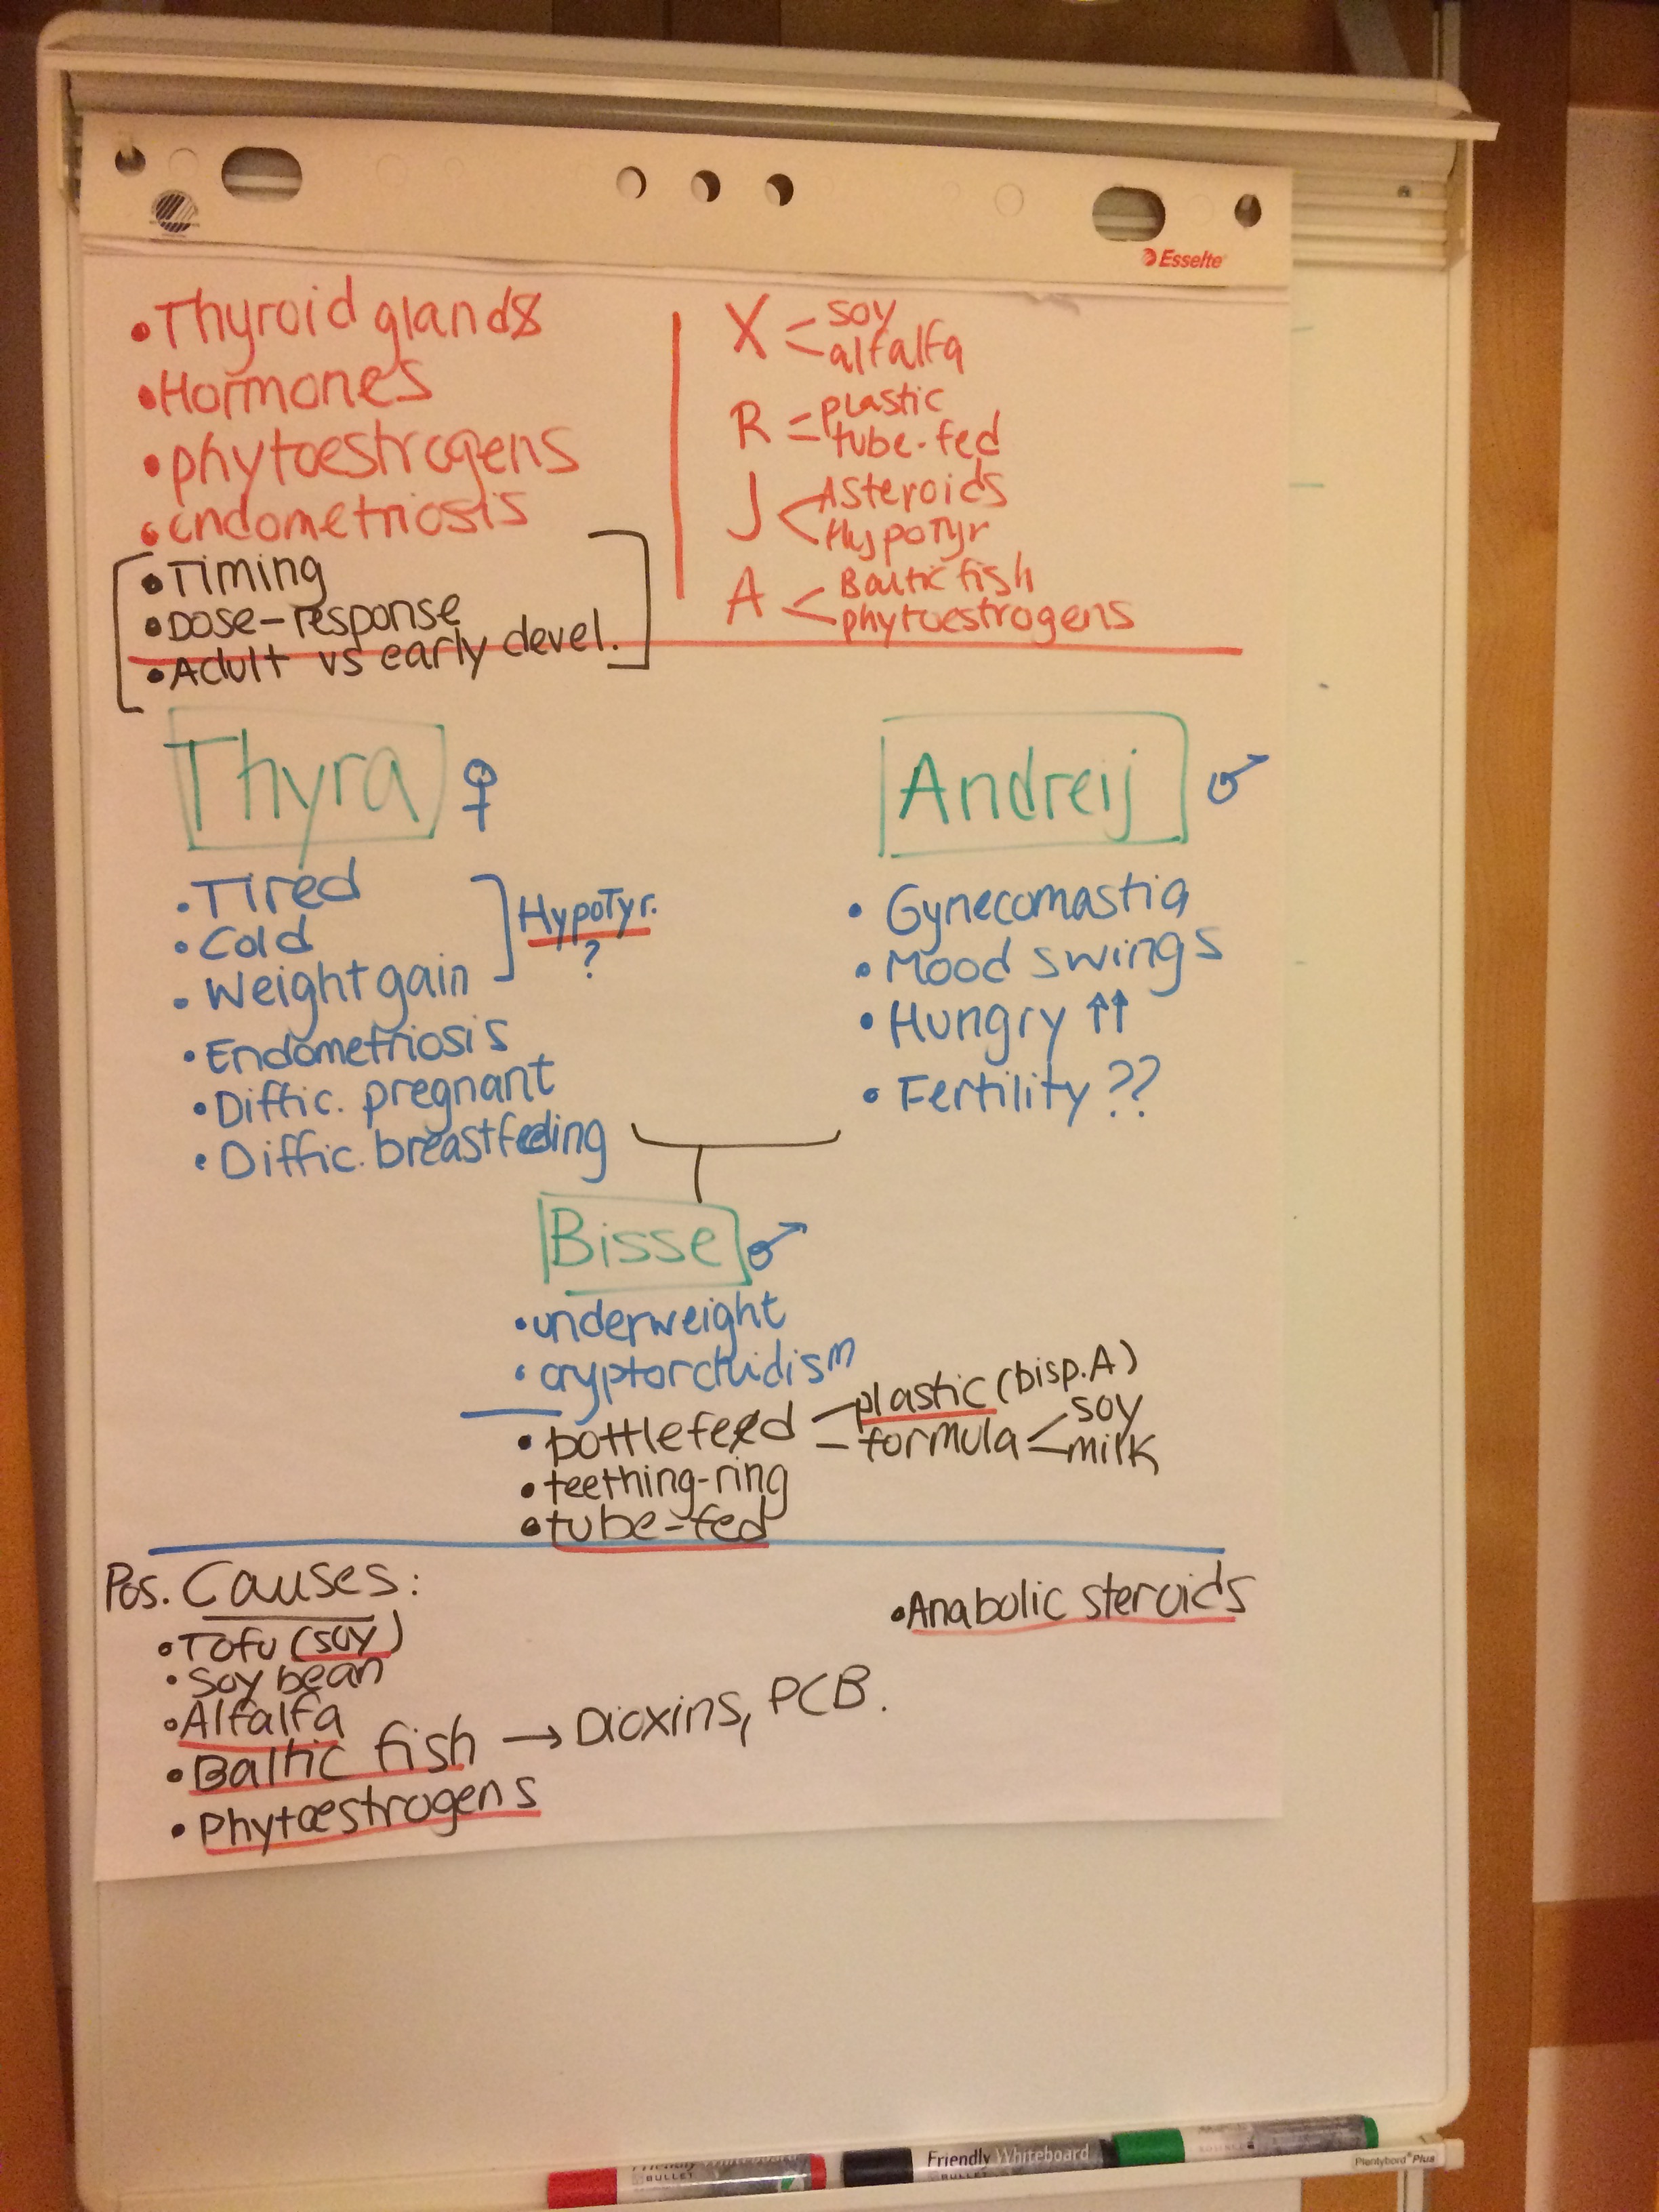 Esselte
•Thyroid glands
•Hormones
•phytoestrogens
•endometriosis
•Timing
•Dose-response
•Adult vs early devel.
X soy
alfalfa
R plastic
tube-fed
J Asteroids
HypoTyr
A Baltic fish
phytoestrogens
Thyra ♀
•Tired
•Cold
•Weight gain
HypoTyr.
?
•Endometriosis
•Diffic. pregnant
•Diffic. breastfeeding
Andreij ♂
•Gynecomastia
•Mood swings
•Hungry ↑↑
•Fertility ??
Bisse ♂
•underweight
•cryptorchidism
•bottlefed plastic (bisp. A)
formula soy
milk
•teething-ring
•tube-fed
Pos. Causes:
•Tofu (soy)
•Soy bean
•Alfalfa
•Baltic fish → Dioxins, PCB.
•Phytoestrogens
•Anabolic steroids
BULLET
Friendly Whiteboard
BULLET
Plentybord Plus